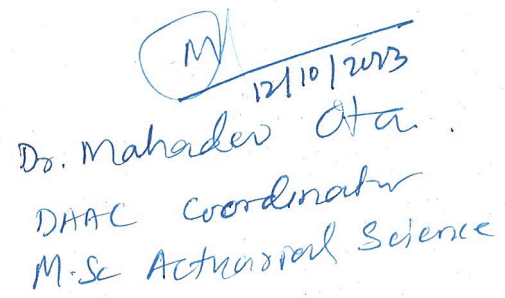 M
12/10/2023
Dr. Mahadev Ota.
DAAC Coordinator
M.Sc Actuarial Science